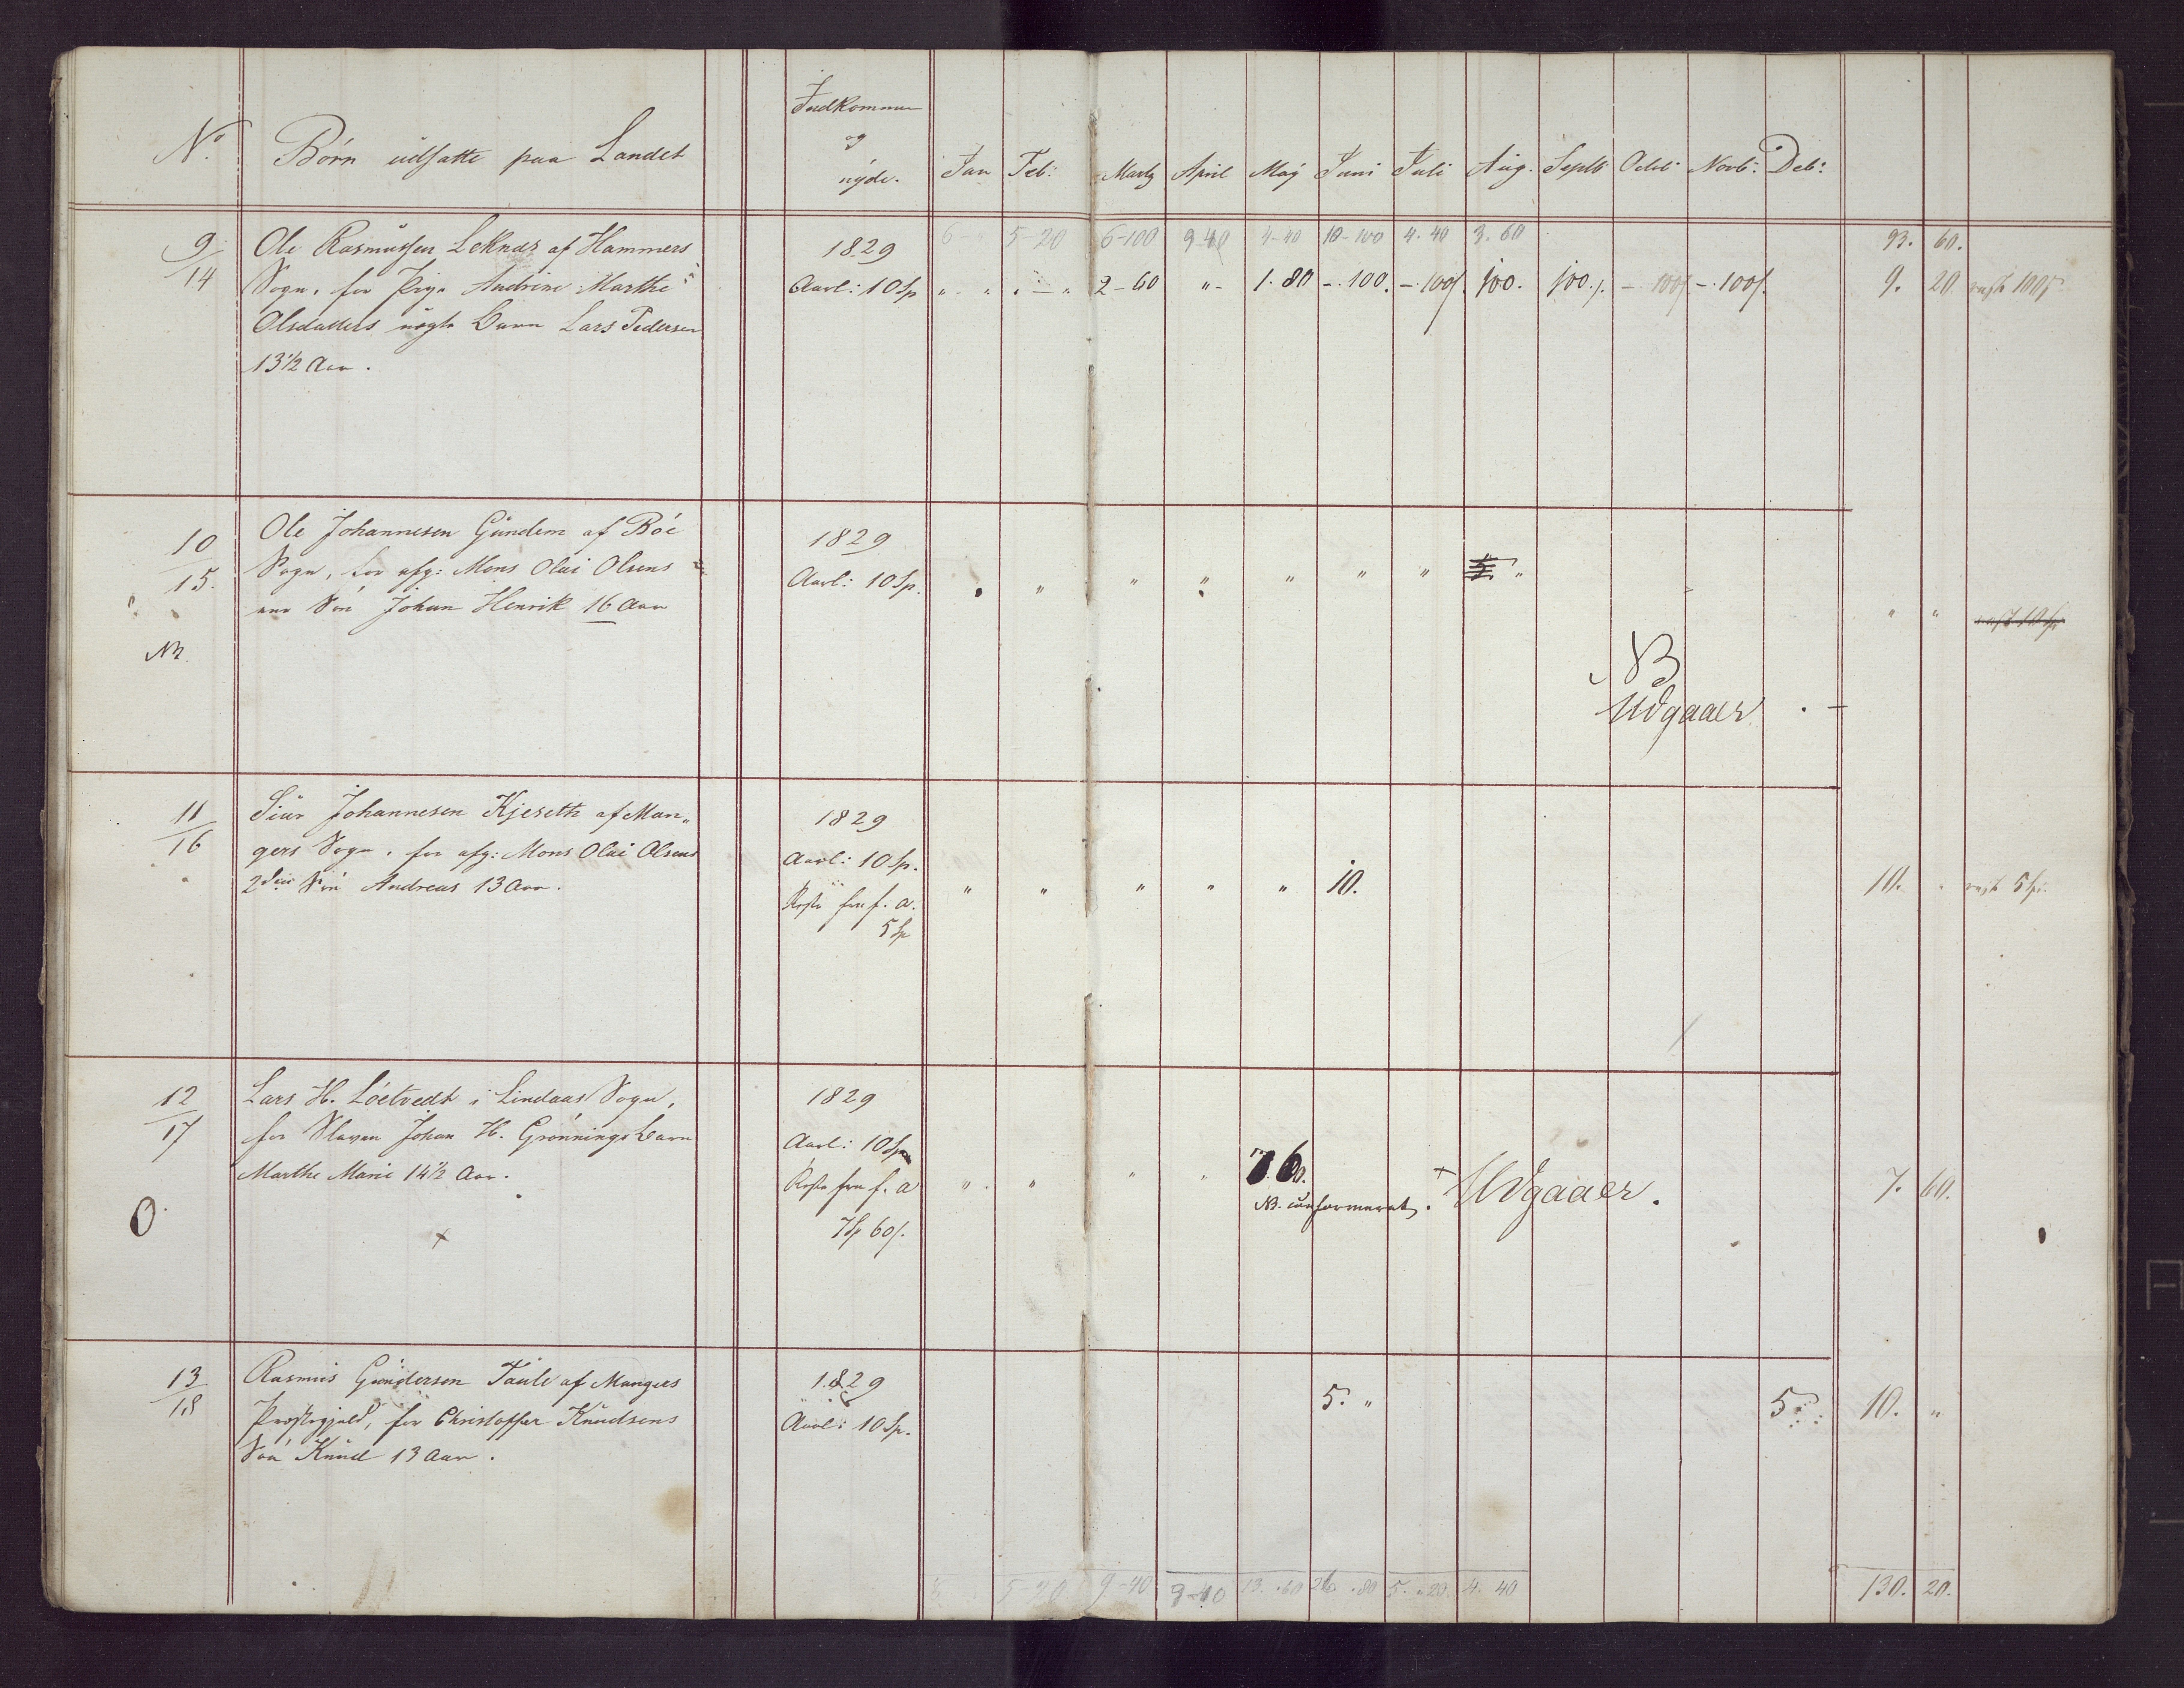 Indkommer
og
nyde.
No. Børn udsatte paa Landet Jan Feb: Martz April Maij Juni Juli Aug. Septb Octbr Novb: Deb:
6 - " 5-20 6-100 9-40 4-40 10-100 4. 40 3. 60 93. 60.
9/14 Ole Rasmussen Leknes af Hammers 1829
Sogn, for Pige Andrine Marthe Aarl: 10 Sp " - " " - " 2-60 " - 1. 80 - . 100. - . 100ſ. 100. 100. ſ. - 100ſ - . 100ſ. 9. 20 rest 100ſ
Olsdatters uægte Barn Lars Pedersen
13 1/2 Aar.
10/15. Ole Johannesen Gundem af Böe 1829
Sogn, for afg: Mons Olai Olsens Aarl: 10 Sp. " " " " " " " "
Sön Johan Henrik 16 Aar " "
NB.
NB
Udgaaer
11/16 Siur Johannesen Kjeseth af Man„ 1829
gers Sogn, for afg: Mons Olai Olsens Aarl: 10 Sp.
2den Sön Andreas 13 Aar. Reste fra f. A. " " " " " 10. 10. " rest 5 Sp.
5 Sp
12/17 Lars H. Löetvedt i Lindaas Sogn, 1829
for Slaven Johan H. Grönnings Barn Aarl: 10 Sp
Marthe Marie 14 1/2 Aar. Reste fra f. A " " " " 7. 60. Udgaaer. 7. 60.
NB. confirmeret.
7 Sp 60ſ.
O
13/18 Rasmus Gundersen Taule af Mangers 1829
Præstegjeld, for Christoffer Knudsens Aarl: 10 Sp. 5. " 5. 10. "
Sön Knud 13 Aar.
6. 5-20. 9-40 9-40 13. 60 26. 80 5. 20. 4. 40 130. 20.